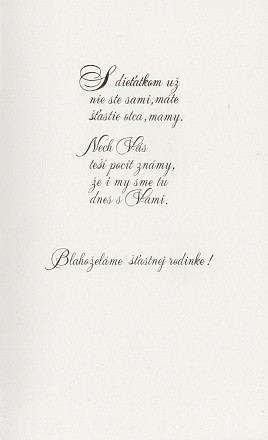 S dieťatkom už
nie ste sami, máte
šťastie otca, mamy.
Nech Vás
teší pocit známy,
že i my sme tu
dnes s Vámi.
Blahoželáme šťastnej rodinke!